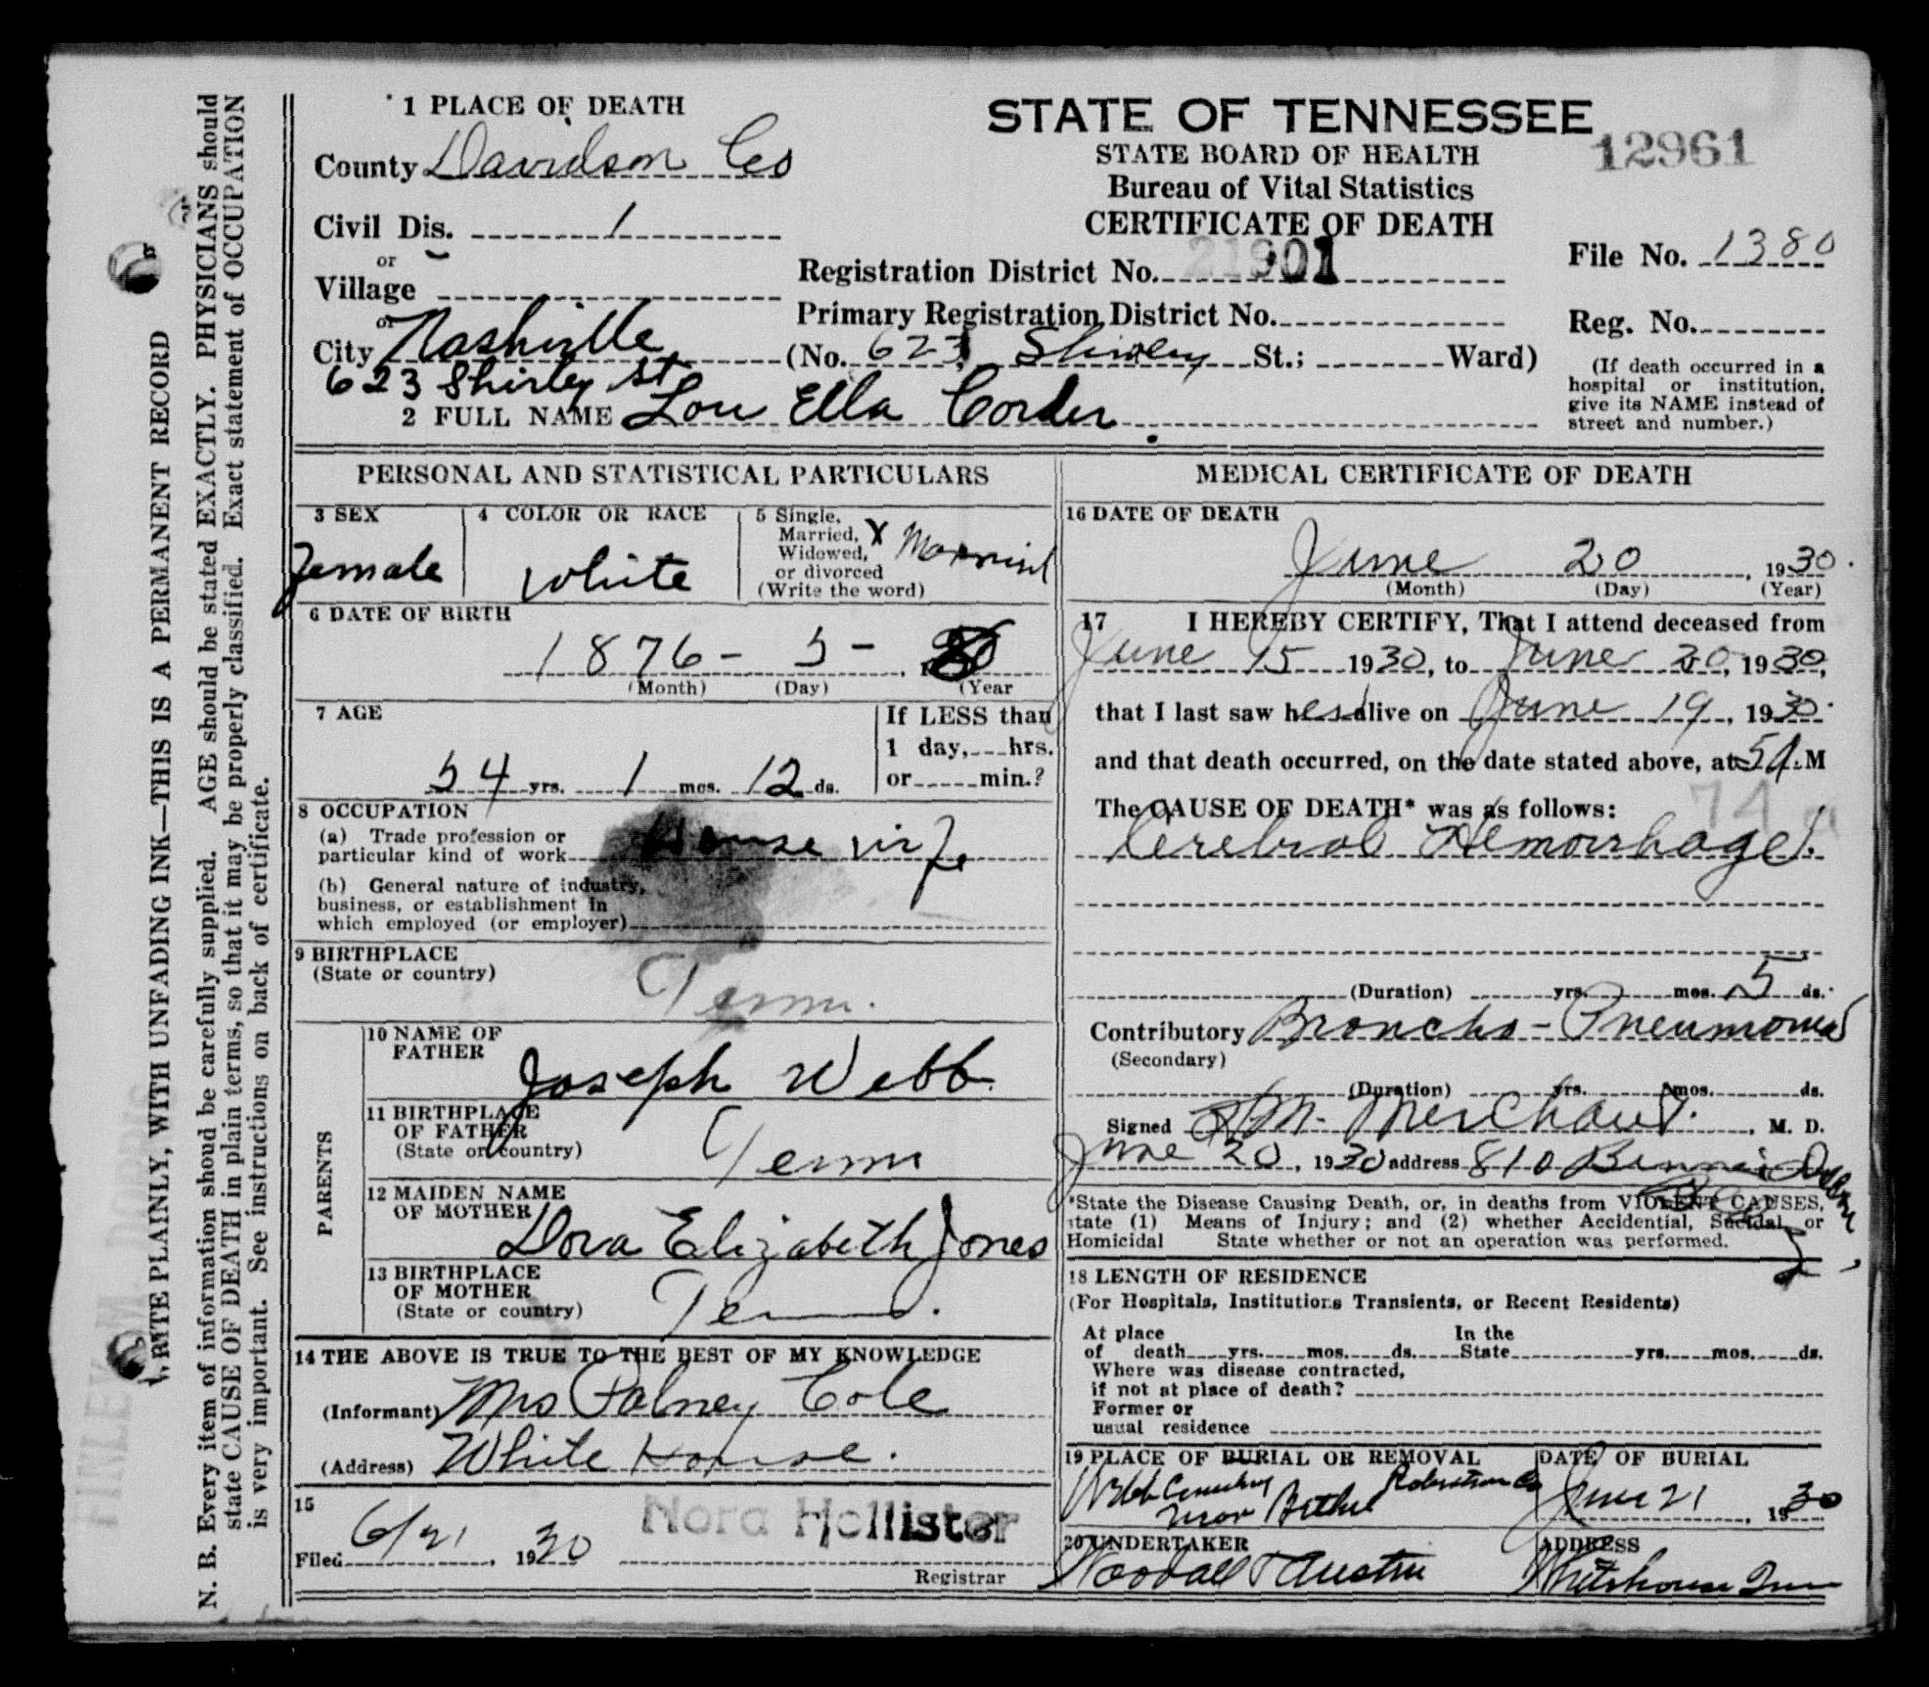 1 PLACE OF DEATH
County Davidson Co
Civil Dis. 1
or
Village
or
City Nashville
623 Shirley St
STATE OF TENNESSEE
STATE BOARD OF HEALTH
Bureau of Vital Statistics
CERTIFICATE OF DEATH
12961
Registration District No. 21901
Primary Registration District No.
(No. 623 Shirley St.; Ward)
File No. 1380
Reg. No.
(If death occurred in a
hospital or institution,
give its NAME instead of
street and number.)
2 FULL NAME Lou Ella Corder
PERSONAL AND STATISTICAL PARTICULARS
3 SEX
Female
4 COLOR OR RACE
White
5 Single,
Married, X
Widowed,
or divorced
(Write the word)
Married
6 DATE OF BIRTH
1876 - 5 -
(Month) (Day) (Year
7 AGE
54 yrs. 1 mos. 12 ds.
If LESS than
1 day, hrs.
or min.?
8 OCCUPATION
(a) Trade profession or
particular kind of work House wife
(b) General nature of industry,
business, or establishment in
which employed (or employer)
9 BIRTHPLACE
(State or country)
Tenn.
PARENTS
10 NAME OF
FATHER
Joseph Webb
11 BIRTHPLACE
OF FATHER
(State or country)
Tenn
12 MAIDEN NAME
OF MOTHER
Dora Elizabeth Jones
13 BIRTHPLACE
OF MOTHER
(State or country)
Tenn.
14 THE ABOVE IS TRUE TO THE BEST OF MY KNOWLEDGE
(Informant) Mrs Palney Cole
(Address) White House.
15
Filed 6/21, 1930
Nora Hollister
Registrar
MEDICAL CERTIFICATE OF DEATH
16 DATE OF DEATH
June 20, 1930.
(Month) (Day) (Year)
17 I HEREBY CERTIFY, That I attend deceased from
June 15 1930, to June 20, 1930,
that I last saw her alive on June 19, 1930.
and that death occurred, on the date stated above, at 5 A.M
The CAUSE OF DEATH* was as follows:
74 a
Cerebral Hemorrhage.
(Duration) yrs. mos. 5 ds.
Contributory Broncho-Pneumonia
(Secondary)
(Duration) yrs. mos. ds.
Signed M. Merchant. , M. D.
June 20, 1930 address 810
*State the Disease Causing Death, or, in deaths from VIOLENT CAUSES,
state (1) Means of Injury; and (2) whether Accidential, Sucidal, or
Homicidal State whether or not an operation was performed.
18 LENGTH OF RESIDENCE
(For Hospitals, Institutions Transients, or Recent Residents)
At place
of death yrs. mos. ds.
In the
State yrs. mos. ds.
Where was disease contracted,
if not at place of death?
Former or
usual residence
19 PLACE OF BURIAL OR REMOVAL
Webb Cemetery Robertson Co
near Bethel
DATE OF BURIAL
June 21, 1930
20 UNDERTAKER
Woodall & Austin
ADDRESS
Whitehouse Tenn
WRITE PLAINLY, WITH UNFADING INK—THIS IS A PERMANENT RECORD
N. B. Every item of information shoud be carefully supplied. AGE should be stated EXACTLY. PHYSICIANS should
state CAUSE OF DEATH in plain terms, so that it may be properly classified. Exact statement of OCCUPATION
is very important. See instructions on back of certificate.